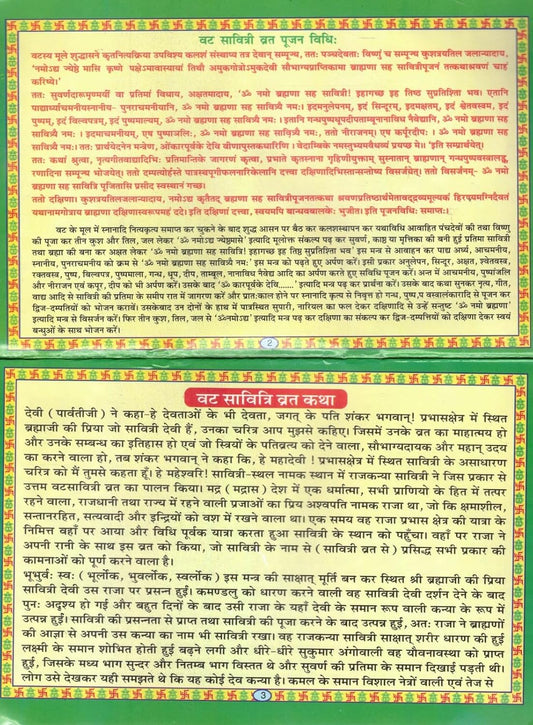 वट सावित्री व्रत पूजन विधि:
वटस्य मूले शुद्धासने कृतनित्यक्रिया उपविश्य कलशं संस्थाप्य तत्र देवान् सम्पूज्य, तत: पञ्चदेवता: विष्णुं च सम्पूज्य कुशत्रयतिल जलान्यादाय,
'नमोऽद्य ज्येष्ठे मासि कृष्णे पक्षेऽमावास्यायां तिथौ अमुकगोत्रोऽमुकदेवी सौभाग्यप्राप्तिकामा ब्राह्मणा सह सावित्रीपूजनं तत्कथाश्रवणं चाहं
करिष्ये।'
तत: सुवर्णदारूमृण्मयीं वा प्रतिमां विधाय, अक्षतमादाय, 'ॐ नमो ब्रह्मणा सह सावित्र्यै! इहागच्छ इह तिष्ठ सुप्रतिष्ठिता भव। एतानि
पाद्यार्घ्याचमनीयस्नानीय- पुनराचमनीयानि, ॐ नमो ब्रह्मणा सह सावित्र्यै नम:। इदमनुलेपनम्, इदं सिन्दूरम्, इदमक्षतम्, इदं श्वेतवस्त्रम्, इदं
पुष्पम्, इदं विल्वपत्रम्, इदं पुष्पमाल्यम्, ॐ नमो ब्रह्मणा सह सावित्र्यै नम:। इतानि गन्धपुष्पधूपदीपताम्बूनानाविध नैवेद्यानि, ॐ नमो ब्रह्मणा सह
सावित्र्यै नम:। इदमाचमनीयम्, एष पुष्पाञ्जलि:, ॐ नमो ब्रह्मणा सह सवित्र्यै नम:, ततो नीराजनम्। एष कर्पूरदीप:। ॐ नमो ब्रह्मणा सह
सावित्र्यै नम:। तत: प्रार्थयेदनेन मन्त्रेण, ओंकारपूर्वके देवि वीणापुस्तकधारिणि। वेदाम्बिके नमस्तुभ्यमवैधव्यं प्रयच्छ मे।।' इति सम्प्रार्थयेत्।
तत: कथां श्रुत्वा, नृत्यगीतवाद्यादिभि: प्रतिमान्तिके जागरणं कृत्वा, प्रभाते कृतस्नाना गृहिणीयुक्ताम् सुस्नातान् ब्राह्मणान् गन्धपुष्पवस्त्रालङ्क
रणादिना सम्पूज्य भोजयेत्। ततो दम्पत्योर्हस्ते पात्रस्थपूगीफलनारिकेलानि दत्त्वा दक्षिणादिभिस्तान्सन्तोष्य विसर्जयेत्। ततो विसर्जनम्- ॐ नमो
ब्रह्मणा सह सावित्रि पूजितासि प्रसीद स्वस्थानं गच्छ।
ततो दक्षिणा कुशत्रयतिलजलान्यादाय, नमोऽद्य कृतैतद् ब्रह्मणा सह सावित्रीपूजनतत्कथा श्रवणप्रतिष्ठार्थमेतावद्द्रव्यमूल्यकं हिरण्यमग्निदैवतं
यथानामगोत्राय ब्राह्मणा दक्षिणास्वरूपमहं ददे। इति दक्षिणां दत्त्वा, स्वयमपि बान्धवबालकै: भुञ्जीत। इति पूजनविधि: समाप्त:।
वट के मूल में स्नानादि नित्यकृत्य समाप्त कर चुकने के बाद शुद्ध आसन पर बैठ कर कलशस्थापन कर यथाविधि आवाहित पंचदेवों की तथा विष्णु
की पूजा कर तीन कुश और तिल, जल लेकर 'ॐ नमोऽद्य ज्येष्ठमासे' इत्यादि मूलोक्त संकल्प पढ़ कर सुवर्ण, काष्ठ या मृत्तिका की बनी हुई प्रतिमा सावित्री
तथा ब्रह्मा की बना कर अक्षत लेकर 'ॐ नमो ब्रह्मणा सह सावित्रि! इहागच्छ इह तिष्ठ सुप्रतिष्ठिता भव' इस मन्त्र से आवाहन कर पाद्य अर्घ्य, आचमनीय,
स्नानीय, पुनराचमनीय को क्रम से 'ॐ नमो ब्रह्मणा सह सावित्र्यै नम:।' इस मन्त्र को पढ़ते हुए अर्पण करें। इसी प्रकार अनुलेपन, सिन्दूर, अक्षत, श्वेतवस्त्र,
रक्तवस्त्र, पुष्प, विल्वपत्र, पुष्पमाला, गन्ध, धूप, दीप, ताम्बूल, नानाविध नैवेद्य आदि का अर्पण करते हुए सविधि पूजन करें। अन्त में आचमनीय, पुष्पांजलि
और नीराजन एवं कपूर, दीप को भी अर्पण करें। उसके बाद 'ॐ कारपूर्वके देवि.......' इत्यादि मन्त्र पढ़ कर प्रार्थना करें। उसके बाद कथा सुनकर नृत्य, गीत,
वाद्य आदि से सावित्री की प्रतिमा के समीप रात में जागरण करें और प्रात:काल होने पर स्नानादि कृत्य से निवृत्त हो गन्ध, पुष्प,प वस्त्रालंकारादि से पूजन कर
द्विज-दम्पतियों को भोजन करावें। उसकेबाद उन दोनों के हाथ में पात्रस्थित सुपारी, नारियल का फल देकर दक्षिणादि से उन्हें सन्तुष्ट 'ॐ नमो ब्रह्मणा'
इत्यादि मन्त्र से विसर्जन करें। फिर तीन कुश, तिल, जल से 'ॐनमोऽद्य' इत्यादि मन्त्र पढ़ कर दक्षिणा का संकल्प कर द्विज-दम्पत्तियों को दक्षिणा देकर स्वयं
बन्धुओं के साथ भोजन करें।
2
वट सावित्रि व्रत कथा
देवी (पार्वतीजी) ने कहा-हे देवताओं के भी देवता, जगत् के पति शंकर भगवान्! प्रभासक्षेत्र में स्थित
ब्रह्माजी की प्रिया जो सावित्री देवी हैं, उनका चरित्र आप मुझसे कहिए। जिसमें उनके व्रत का माहात्म्य हो
और उनके सम्बन्ध का इतिहास हो एवं जो स्त्रियों के पतिव्रत्य को देने वाला, सौभाग्यदायक और महान् उदय
का करने वाला हो, तब शंकर भगवान् ने कहा कि, हे महादेवी ! प्रभासक्षेत्र में स्थित सावित्री के असाधारण
चरित्र को मैं तुमसे कहता हूँ। हे महेश्वरि! सावित्री-स्थल नामक स्थान में राजकन्या सावित्री ने जिस प्रकार से
उत्तम वटसावित्री व्रत का पालन किया। मद्र (मद्रास) देश में एक धर्मात्मा, सभी प्राणियो के हित में तत्पर
रहने वाला, राजधानी तथा राज्य में रहने वाली प्रजाओं का प्रिय अश्वपति नामक राजा था, जो कि क्षमाशील,
सन्तानरहित, सत्यवादी और इन्द्रियों को वश में रखने वाला था। एक समय वह राजा प्रभास क्षेत्र की यात्रा के
निमित्त वहाँ पर आया और विधि पूर्वक यात्रा करता हुआ सावित्री के स्थान को पहुँचा। वहाँ पर राजा ने
अपनी रानी के साथ इस व्रत को किया, जो सावित्री के नाम से (सावित्री व्रत से) प्रसिद्ध सभी प्रकार की
कामनाओं को पूर्ण करने वाला है।
भूर्भुव: स्व: (भूर्लोक, भुवर्लोक, स्वर्लोक) इस मन्त्र की साक्षात् मूर्ति बन कर स्थित श्री ब्रह्माजी की प्रिया
सावित्री देवी उस राजा पर प्रसन्न हुईं। कमण्डलु को धारण करने वाली वह सावित्री देवी दर्शन देने के बाद
पुन: अदृश्य हो गई और बहुत दिनों के बाद उसी राजा के यहाँ देवी के समान रूप वाली कन्या के रूप में
उत्पन्न हुईं। सावित्री की प्रसन्नता से प्राप्त तथा सावित्री की पूजा करने के बाद उत्पन्न हुई, अत: राजा ने ब्राह्मणों
की आज्ञा से अपनी उस कन्या का नाम भी सावित्री रखा। वह राजकन्या सावित्री साक्षात् शरीर धारण की हुई
लक्ष्मी के समान शोभित होती हुई बढ़ने लगी और धीरे-धीरे सुकुमार अंगोवाली वह यौवनावस्था को प्राप्त
हुई, जिसके मध्य भाग सुन्दर और नितम्ब भाग विस्तत थे और सुवर्ण की प्रतिमा के समान दिखाई पड़ती थी।
लोग उसे देखकर यही समझते थे कि यह कोई देव कन्या है। कमल के समान विशाल नेत्रों वाली एवं तेज से
3